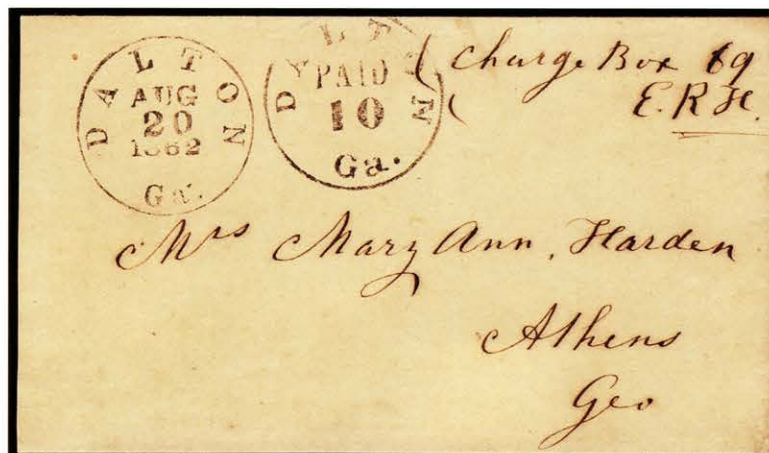 DALTON
AUG
20
1862
Ga.
DALTON
PAID
10
Ga.
Charge Box 69
E. R H.
Mrs Mary Ann. Harden
Athens
Geo